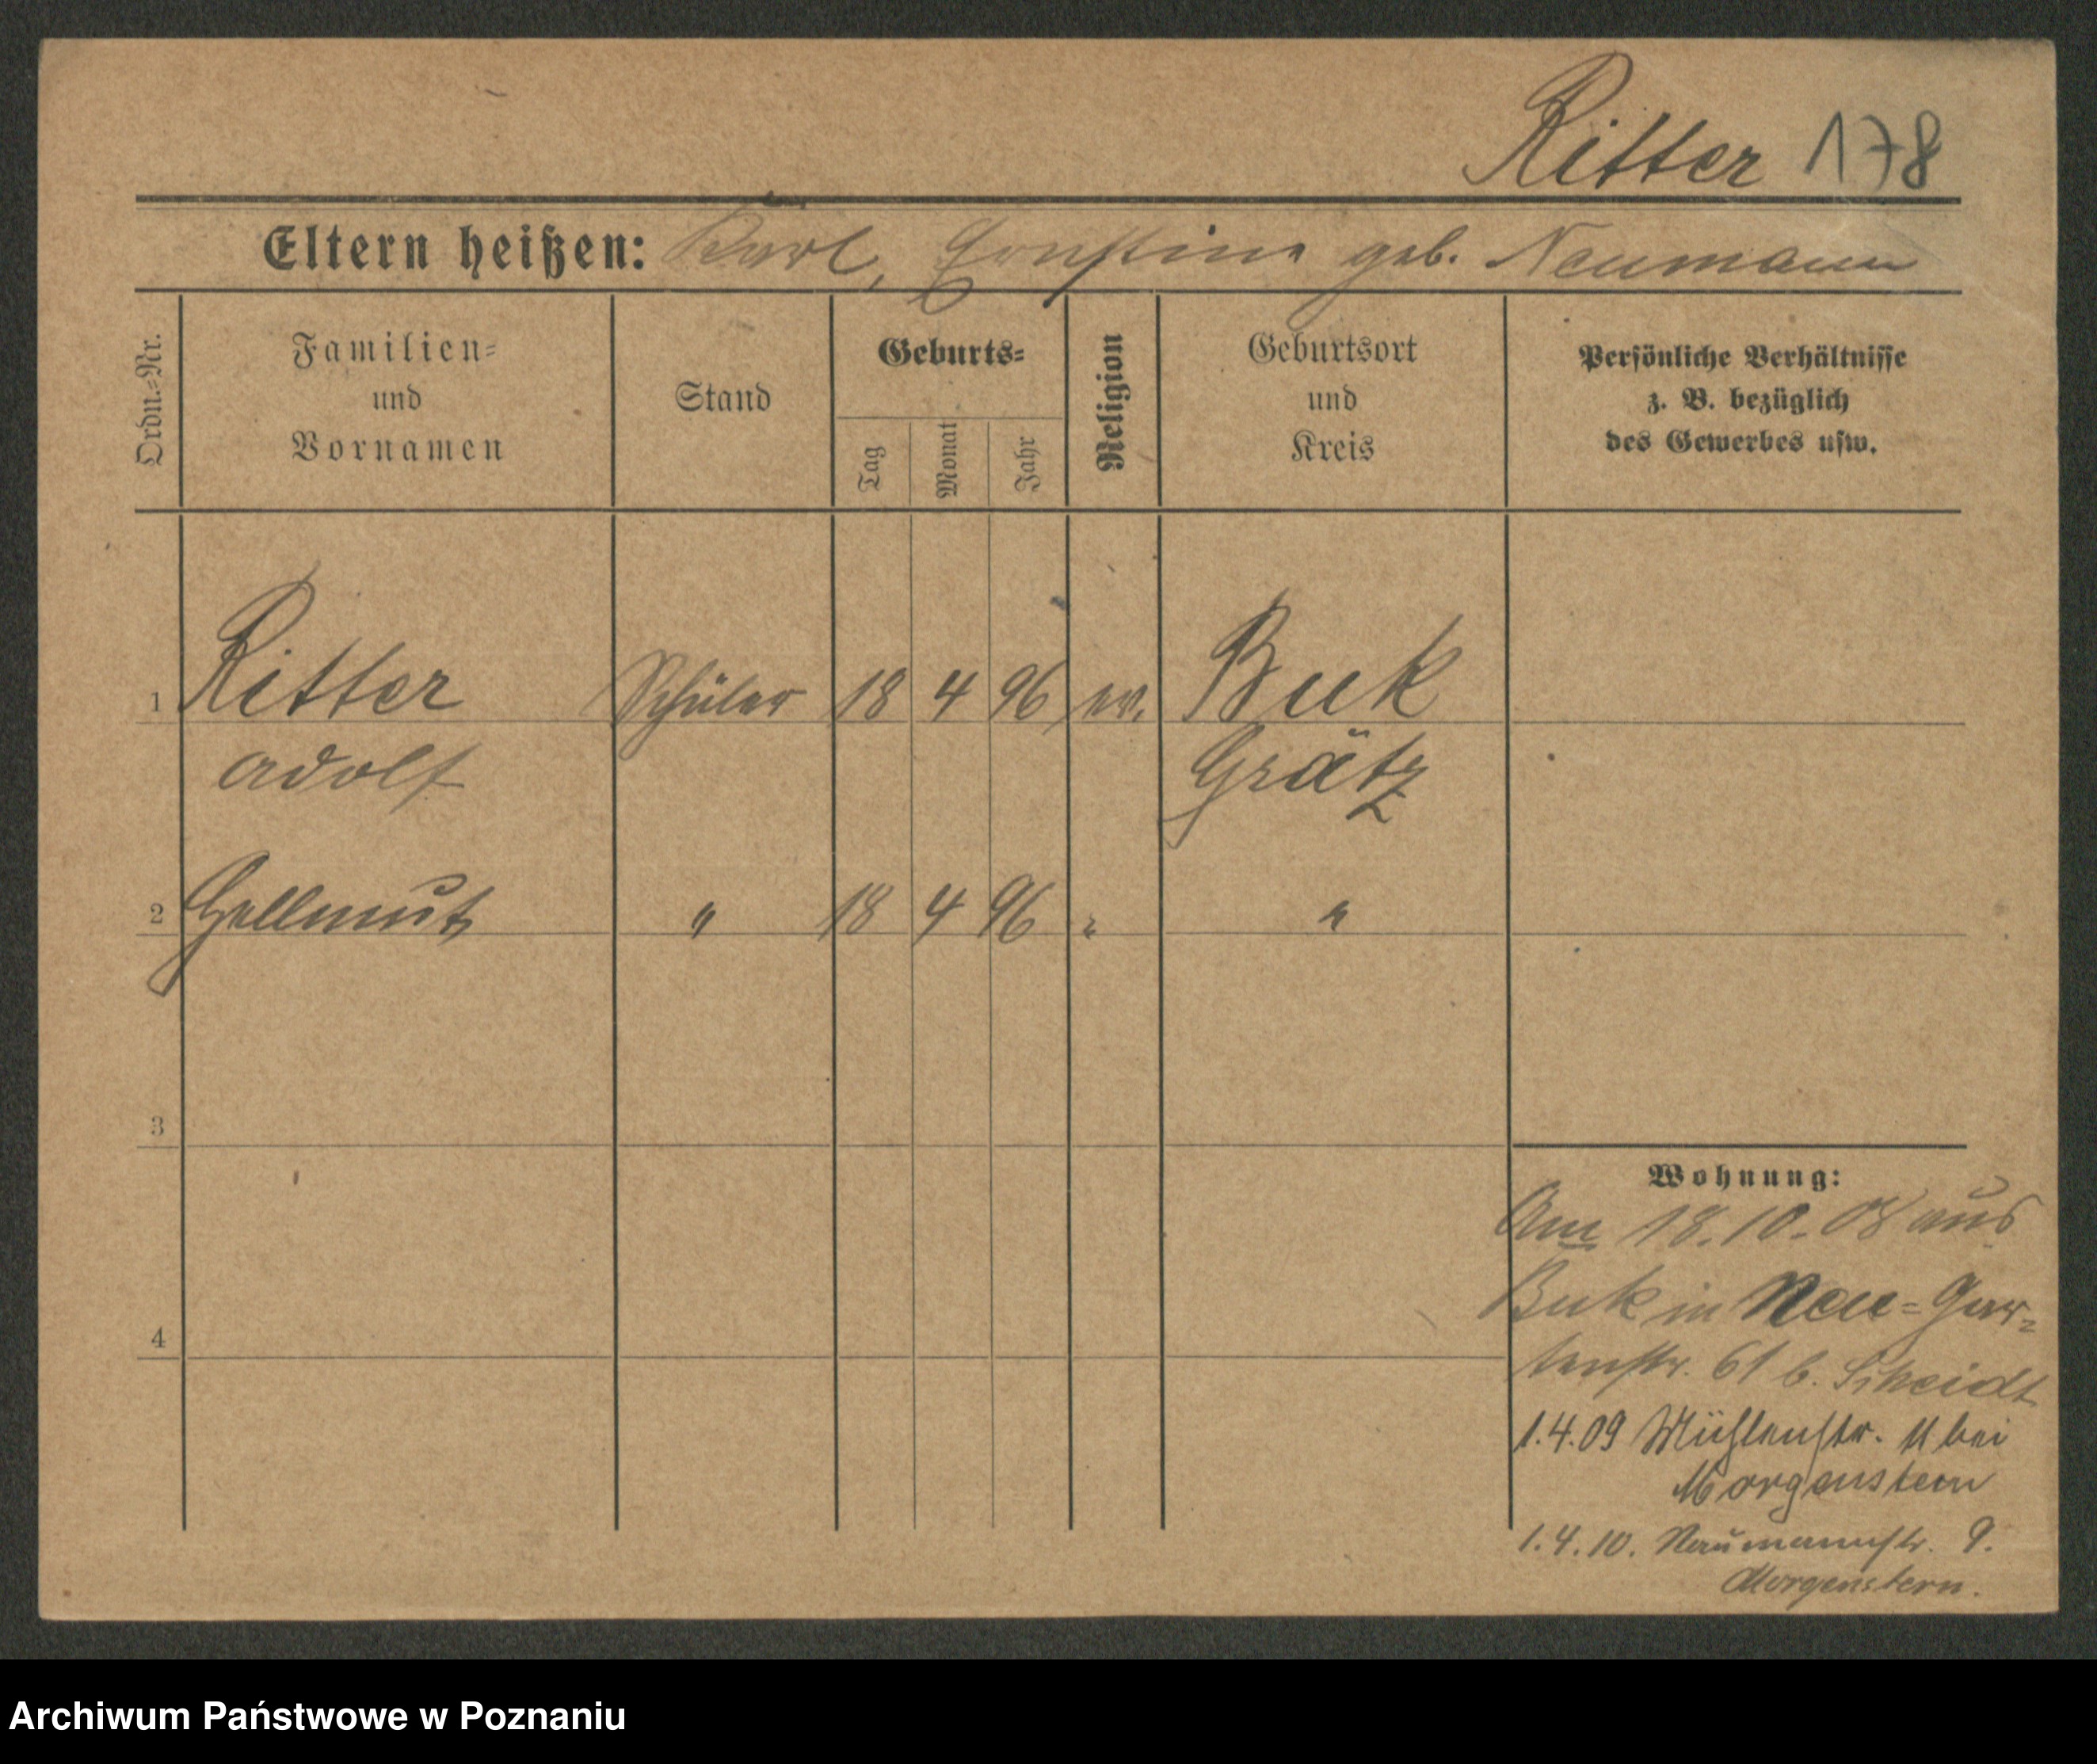 Ritter 178
Eltern heißen: Karl, Ernstine geb. Neumann
Ordn.=Nr.
Familien=
und
Vornamen
Stand
Geburts=
Tag
Monat
Jahr
Religion
Geburtsort
und
Kreis
Persönliche Verhältnisse
z. B. bezüglich
des Gewerbes usw.
1 Ritter Schüler 18 4 96 ev. Buk
Adolf Grätz
2 Hellmut " 18 4 96 " "
3
4
Wohnung:
Am 18.10.08 aus
Buk in Neu=Gar=
tenstr. 61 b. Scheidt
1.4.09 Mühlenstr. 11 bei
Morgenstern
1.4.10. Naumannstr. 9.
Morgenstern.
Archiwum Państwowe w Poznaniu